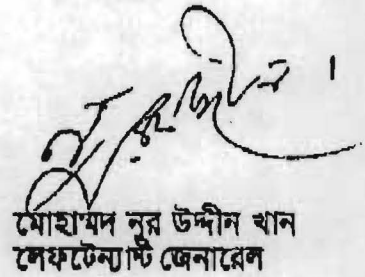 মোহাম্মদ নূর উদ্দীন খান
লেফটেন্যান্ট জেনারেল